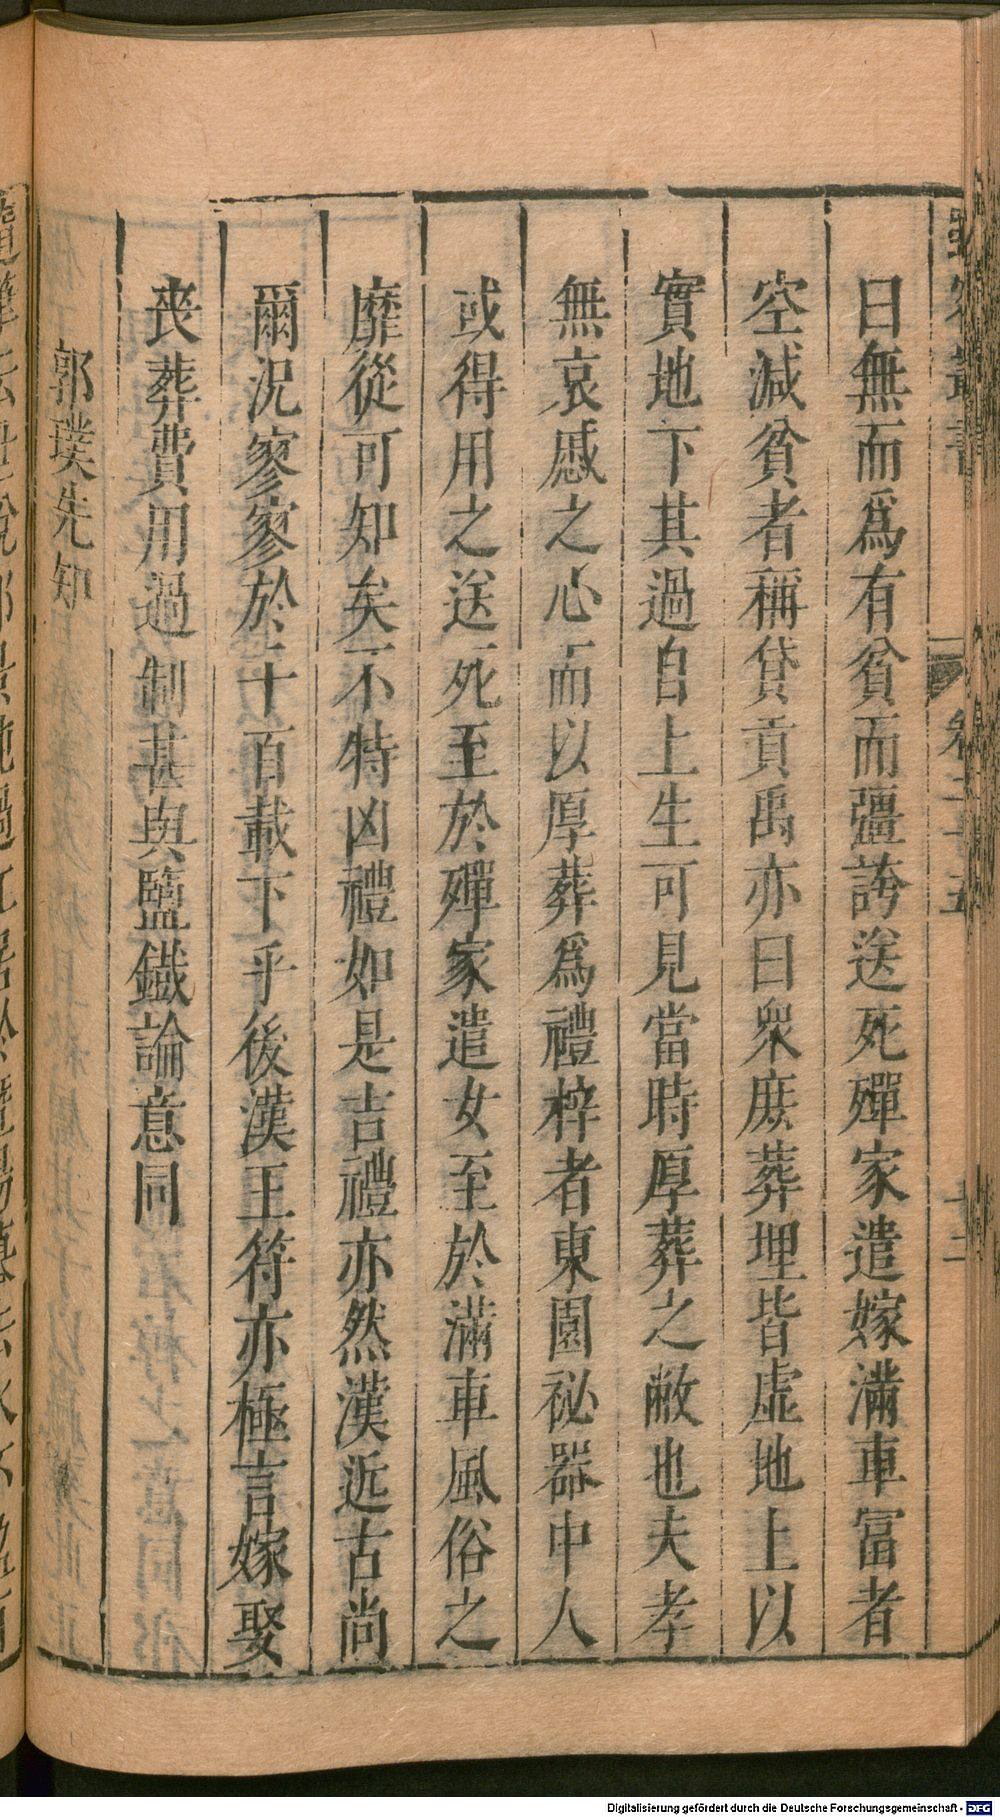 曰無而爲有貧而彊誇送死殫家遣嫁滿車富者
空減貧者稱貸貢禹亦曰衆庶葬埋皆虛地上以
實地下其過自上生可見當時厚葬之敝也夫孝
無哀慼之心而以厚葬爲禮梓者東園祕器中人
或得用之送死至於殫家遣女至於滿車風俗之
靡從可知矣不特凶禮如是吉禮亦然漢近古尚
爾況寥寥於千百載下乎後漢王符亦極言嫁娶
喪葬費用過制甚與鹽鐵論意同
郭璞先知
Digitalisierung gefördert durch die Deutsche Forschungsgemeinschaft - DFG